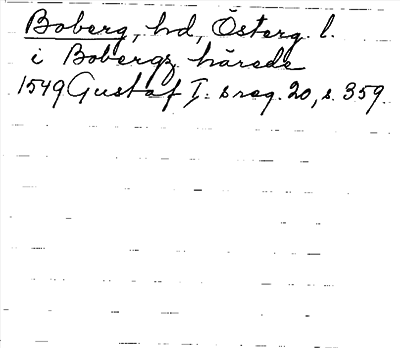 Boberg, hd, Österg. l.
i Bobergs härede
1549 Gustaf I:s reg. 20, s. 359.